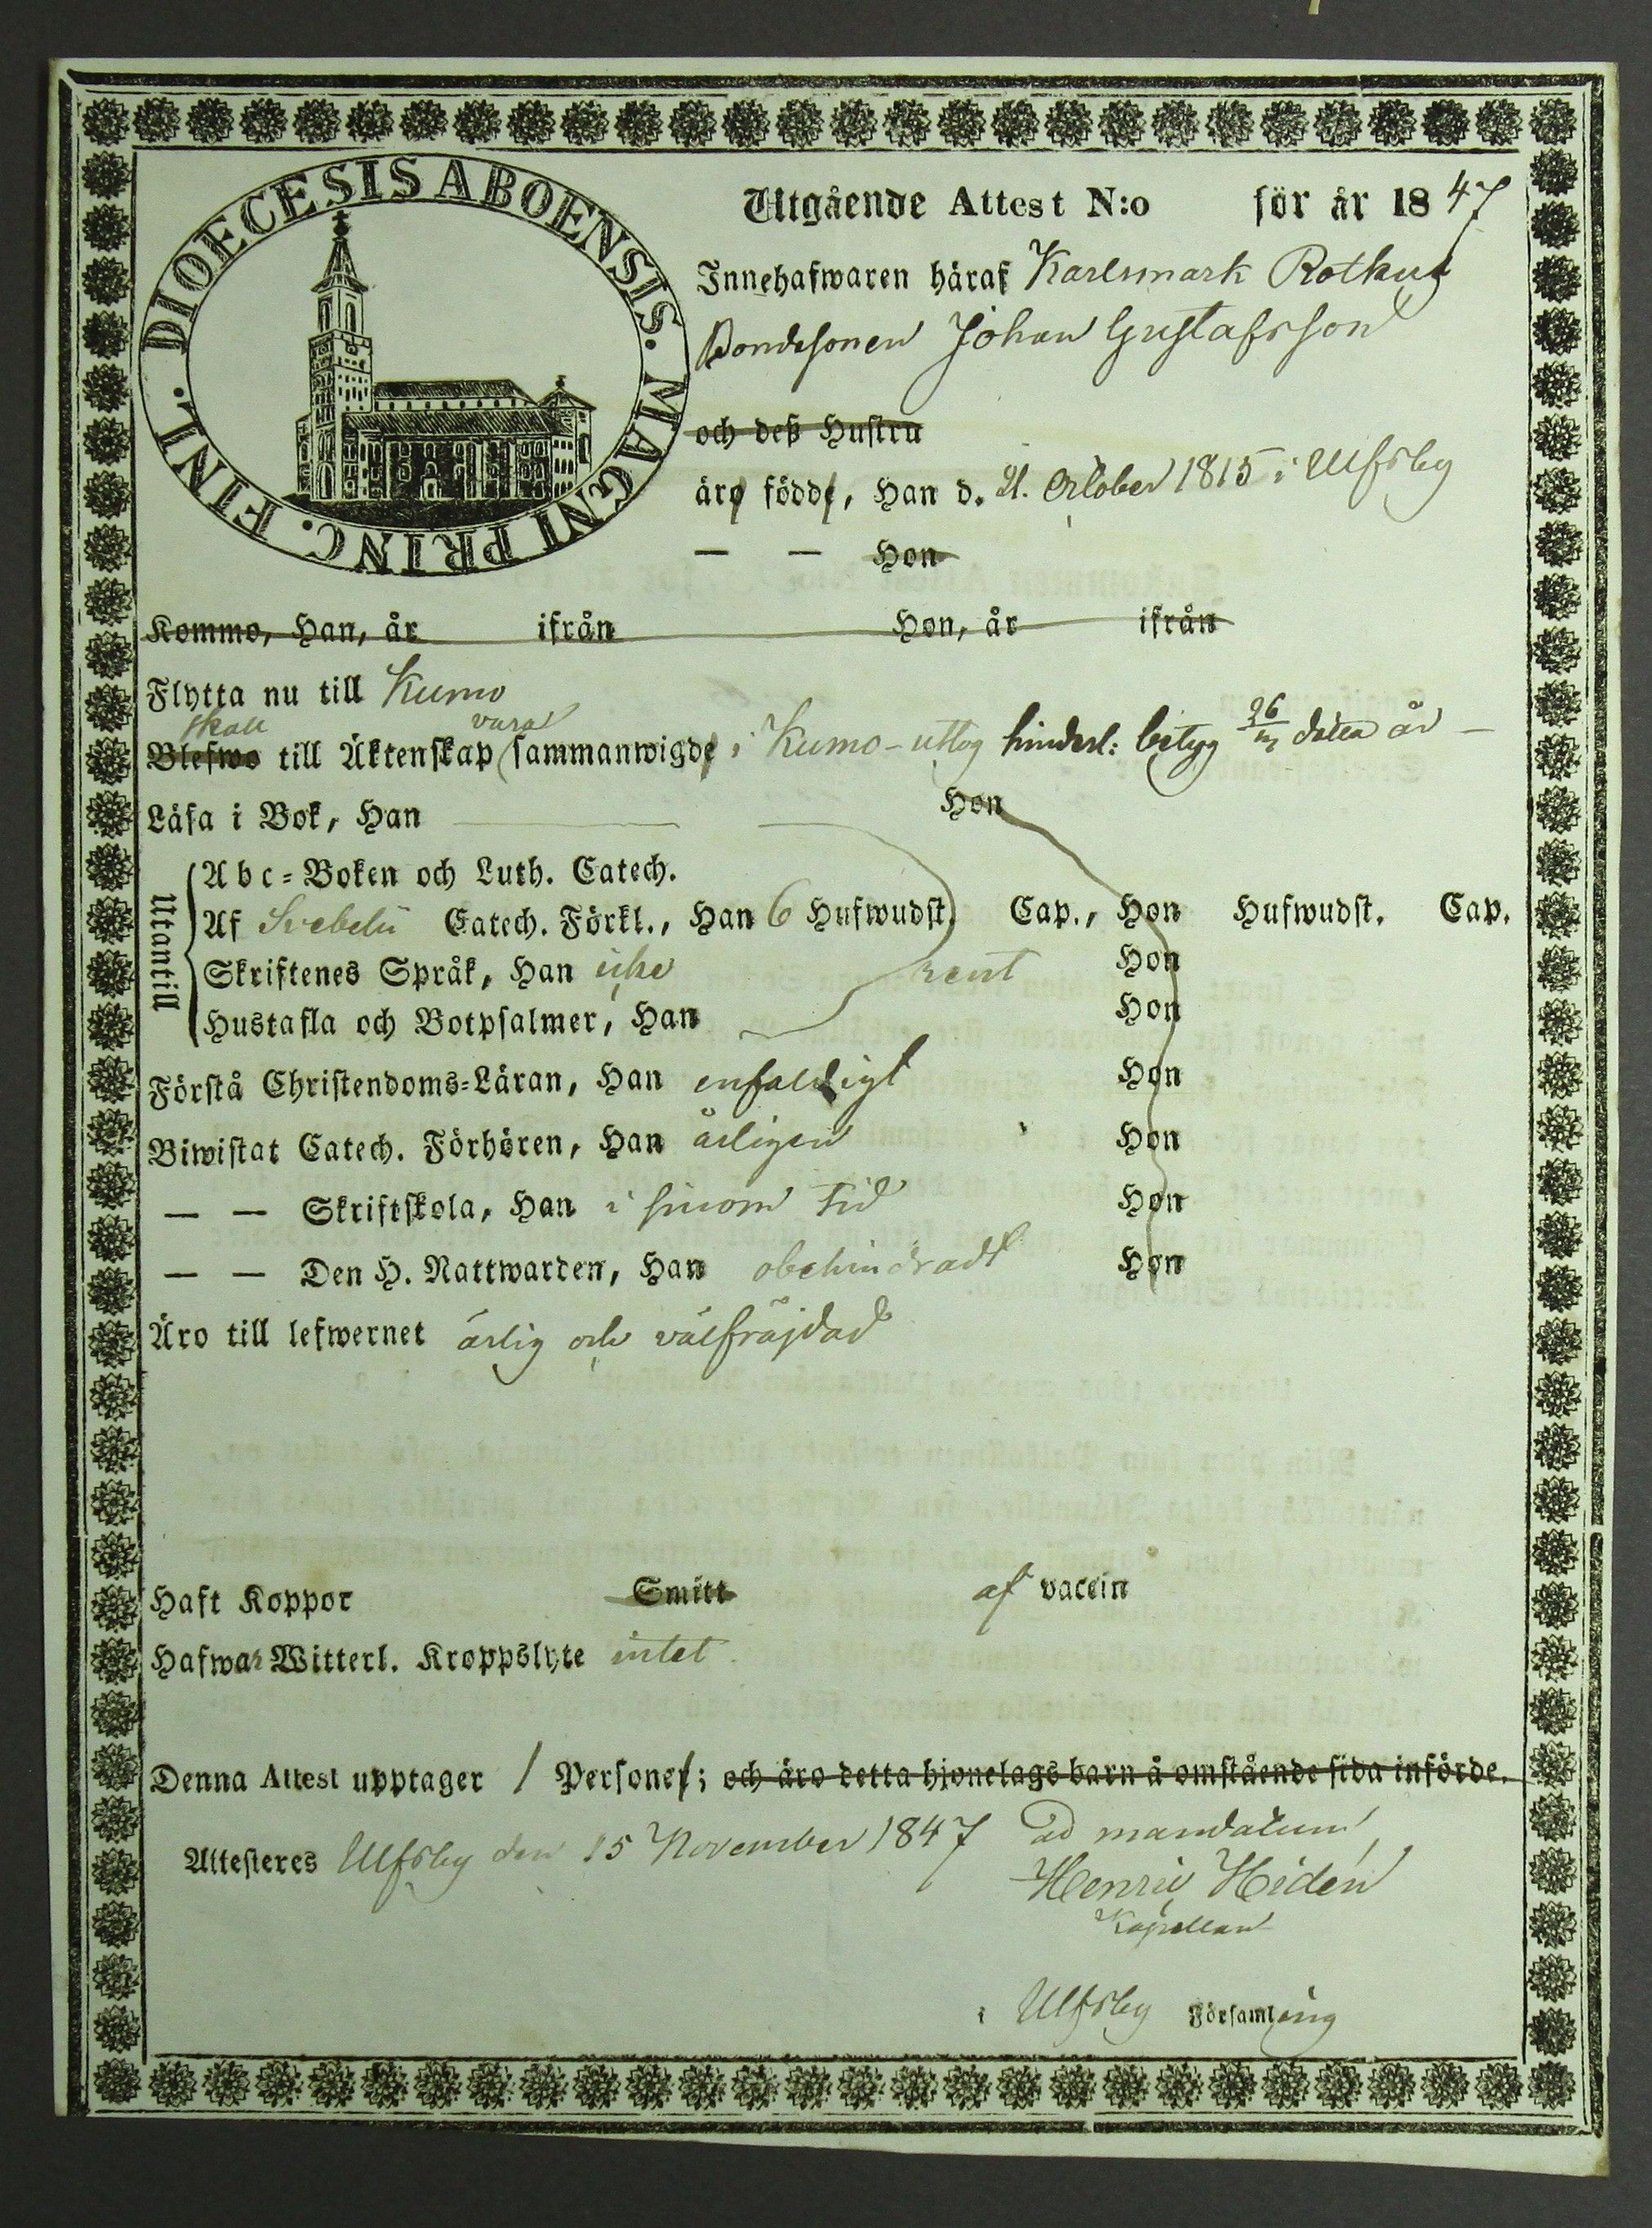 DIOECESIS ABOENSIS. MAGNI PRINC. FINL.
Utgående Attest N:o för år 1847
Innehafwaren häraf Karlsmark Rothus
Bondesonen Johan Gustafsson
och deß Hustru
äro födde, Han d. 21. October 1815 i Ulfsby
— — Hon
Kommo, Han, år ifrån Hon, år ifrån
Flytta nu till Kumo
skall vara
Blefwo till Äktenskap sammanwigde i Kumo - uttog hinderl: betyg 26 detta år —
Läsa i Bok, Han Hon
Utantill
Abc-Boken och Luth. Catech.
Af Svebelii Catech. Förkl., Han 6 Hufwudst. Cap., Hon Hufwudst. Cap.
Skriftenes Språk, Han icke rent Hon
Hustafla och Botpsalmer, Han Hon
Förstå Christendoms-Läran, Han enfaldigt Hon
Biwistat Catech. Förhören, Han årligen Hon
— — Skriftskola, Han i sinom tid Hon
— — Den H. Nattwarden, Han obehindradt Hon
Äro till lefwernet ärlig och välfräjdad
Haft Koppor Smitt af vaccin
Hafwar Witterl. Kroppslyte intet
Denna Attest upptager 1 Personer; och äro detta hjonelags barn å omstående sida införde.
Attesteres Ulfsby den 15 November 1847 ad mandatum
Henric Hidén
Kapellan
i Ulfsby Församling